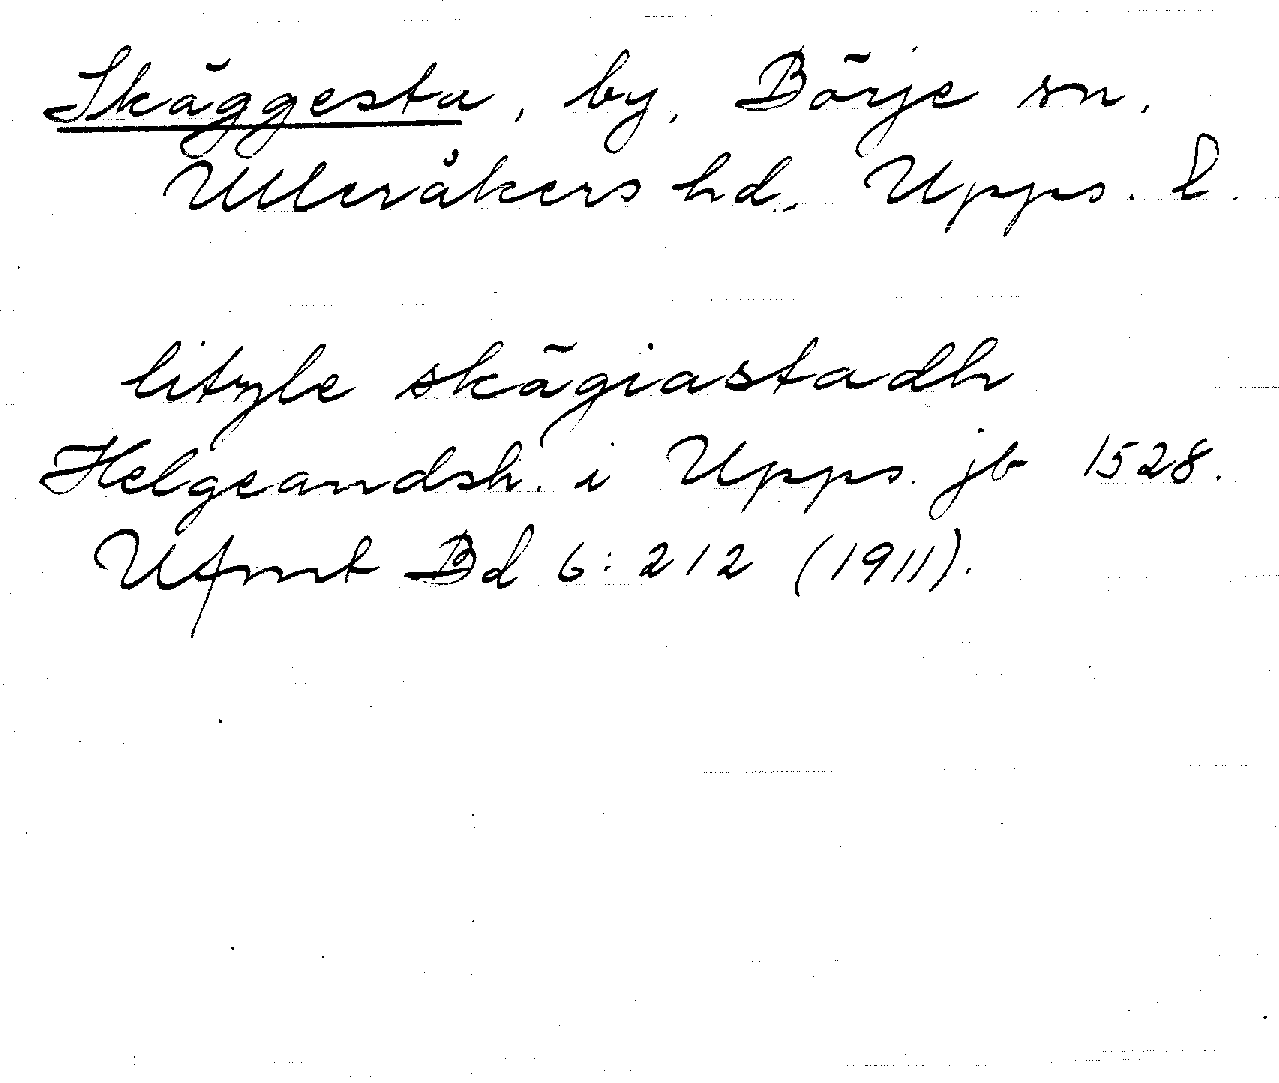 Skäggesta, by, Börje sn,
Ulleråkers hd, Upps. l.
lityle skägiastadh
Helgeandsh. i Upps. jb 1528.
Ufmt Bd 6:212 (1911).